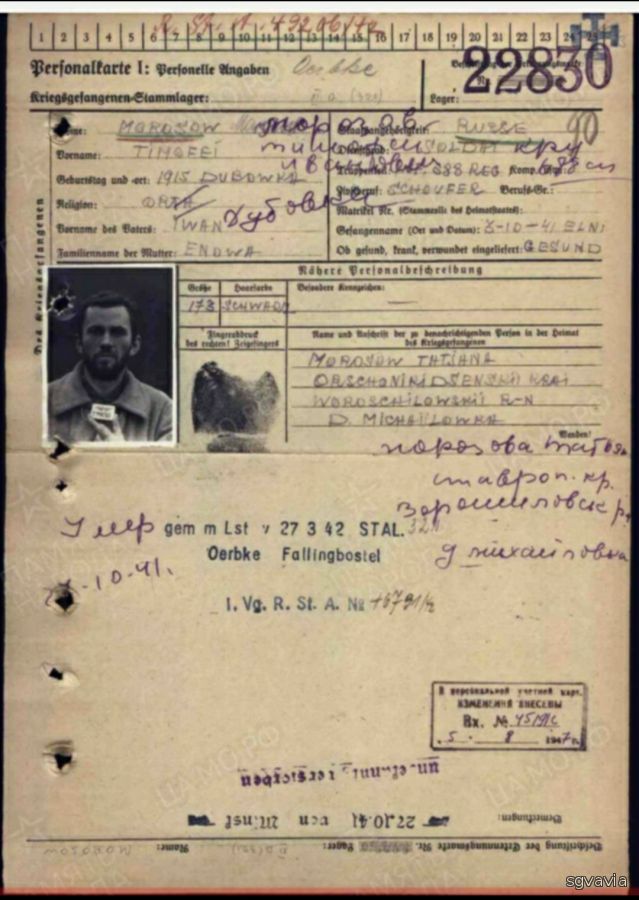 R. St. A. 492 06/42
1 2 3 4 5 6 7 8 9 10 11 12 13 14 15 16 17 18 19 20 21 22 23 24 25
Personalkarte I: Personelle Angaben Oerbke
22830
Kriegsgefangenen-Stammlager: Lager:
Name: MOROSOW Staatsangehörigkeit: RUSSE
Морозов
Vorname: TIMOFEI Dienstgrad: SOLDAT
Тимофей
Иванович
Geburtstag und -ort: 1915 DUBOWKA 688 REG Komp.
Дубовка
Religion: ORTH Zivilberuf: SCHOUFER Berufs-Gr.:
Matrikel Nr. (Stammrolle des Heimatstaates):
Vorname des Vaters: IWAN Gefangennahme (Ort und Datum): 3-10-41 ELNI
Familienname der Mutter: ENOWA Ob gesund, krank, verwundet eingeliefert: GESUND
Nähere Personalbeschreibung
Größe Haarfarbe Besondere Kennzeichen:
173 SCHWARZ —
Fingerabdruck des rechten! Zeigefingers
Name und Anschrift der zu benachrichtigenden Person in der Heimat
des Kriegsgefangenen
MOROSOW TATJANA
ORSCHONIKIDSENSKII KRAI
WOROSCHILOWSKII R-N
D. MICHAILOWKA
Wenden!
Морозова
Ставроп. кр.
Ворошиловск р
д Михайловка
Умер
gem m Lst v 27 3 42 STAL. 321
Oerbke Fallingbostel
10.41.
I. Vg. R. St. A. №
В персональной учетной карт.
ИЗМЕНЕНИЯ ВНЕСЕНЫ
Вх. №
5 8 1947 г.
unbekannt verstorben
27.10.41 von
Bemerkungen:
Beschriftung der Erkennungsmarke Nr. Lager: Name: MOROSOW
ЦАМО.РФ
sgvavia